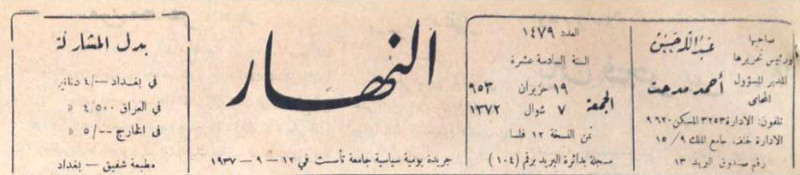 صاحبها
ورئيس تحريرها
عبد الله حسن
المدير المسؤول
المحامي
أحمد مدحت
تلفون: الادارة ٣٢٥٣ المسكن ٩٦٢٠
الادارة خلف جامع الملك ٩ / ١٥
رقم صندوق البريد ١٣
العدد ١٤٧٩
السنة السادسة عشرة
الجمعة
١٩ حزيران ٩٥٣
٧ شوال ١٣٧٢
ثمن النسخة ١٢ فلسا
مسجلة بدائرة البريد برقم (١٠٤)
النهار
جريدة يومية سياسية جامعة تأسست في ١٢ – ٩ – ١٩٣٧
بدل المشاركة
في بغداد -/٤ دنانير
في العراق ٤/٥٠٠
في الخارج -/٥
مطبعة شفيق – بغداد